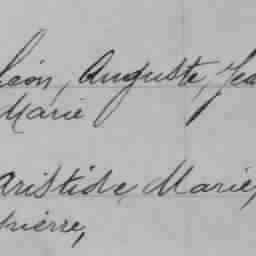 Léon, Auguste, Jea
Marie
Aristide, Marie,
Pierre,